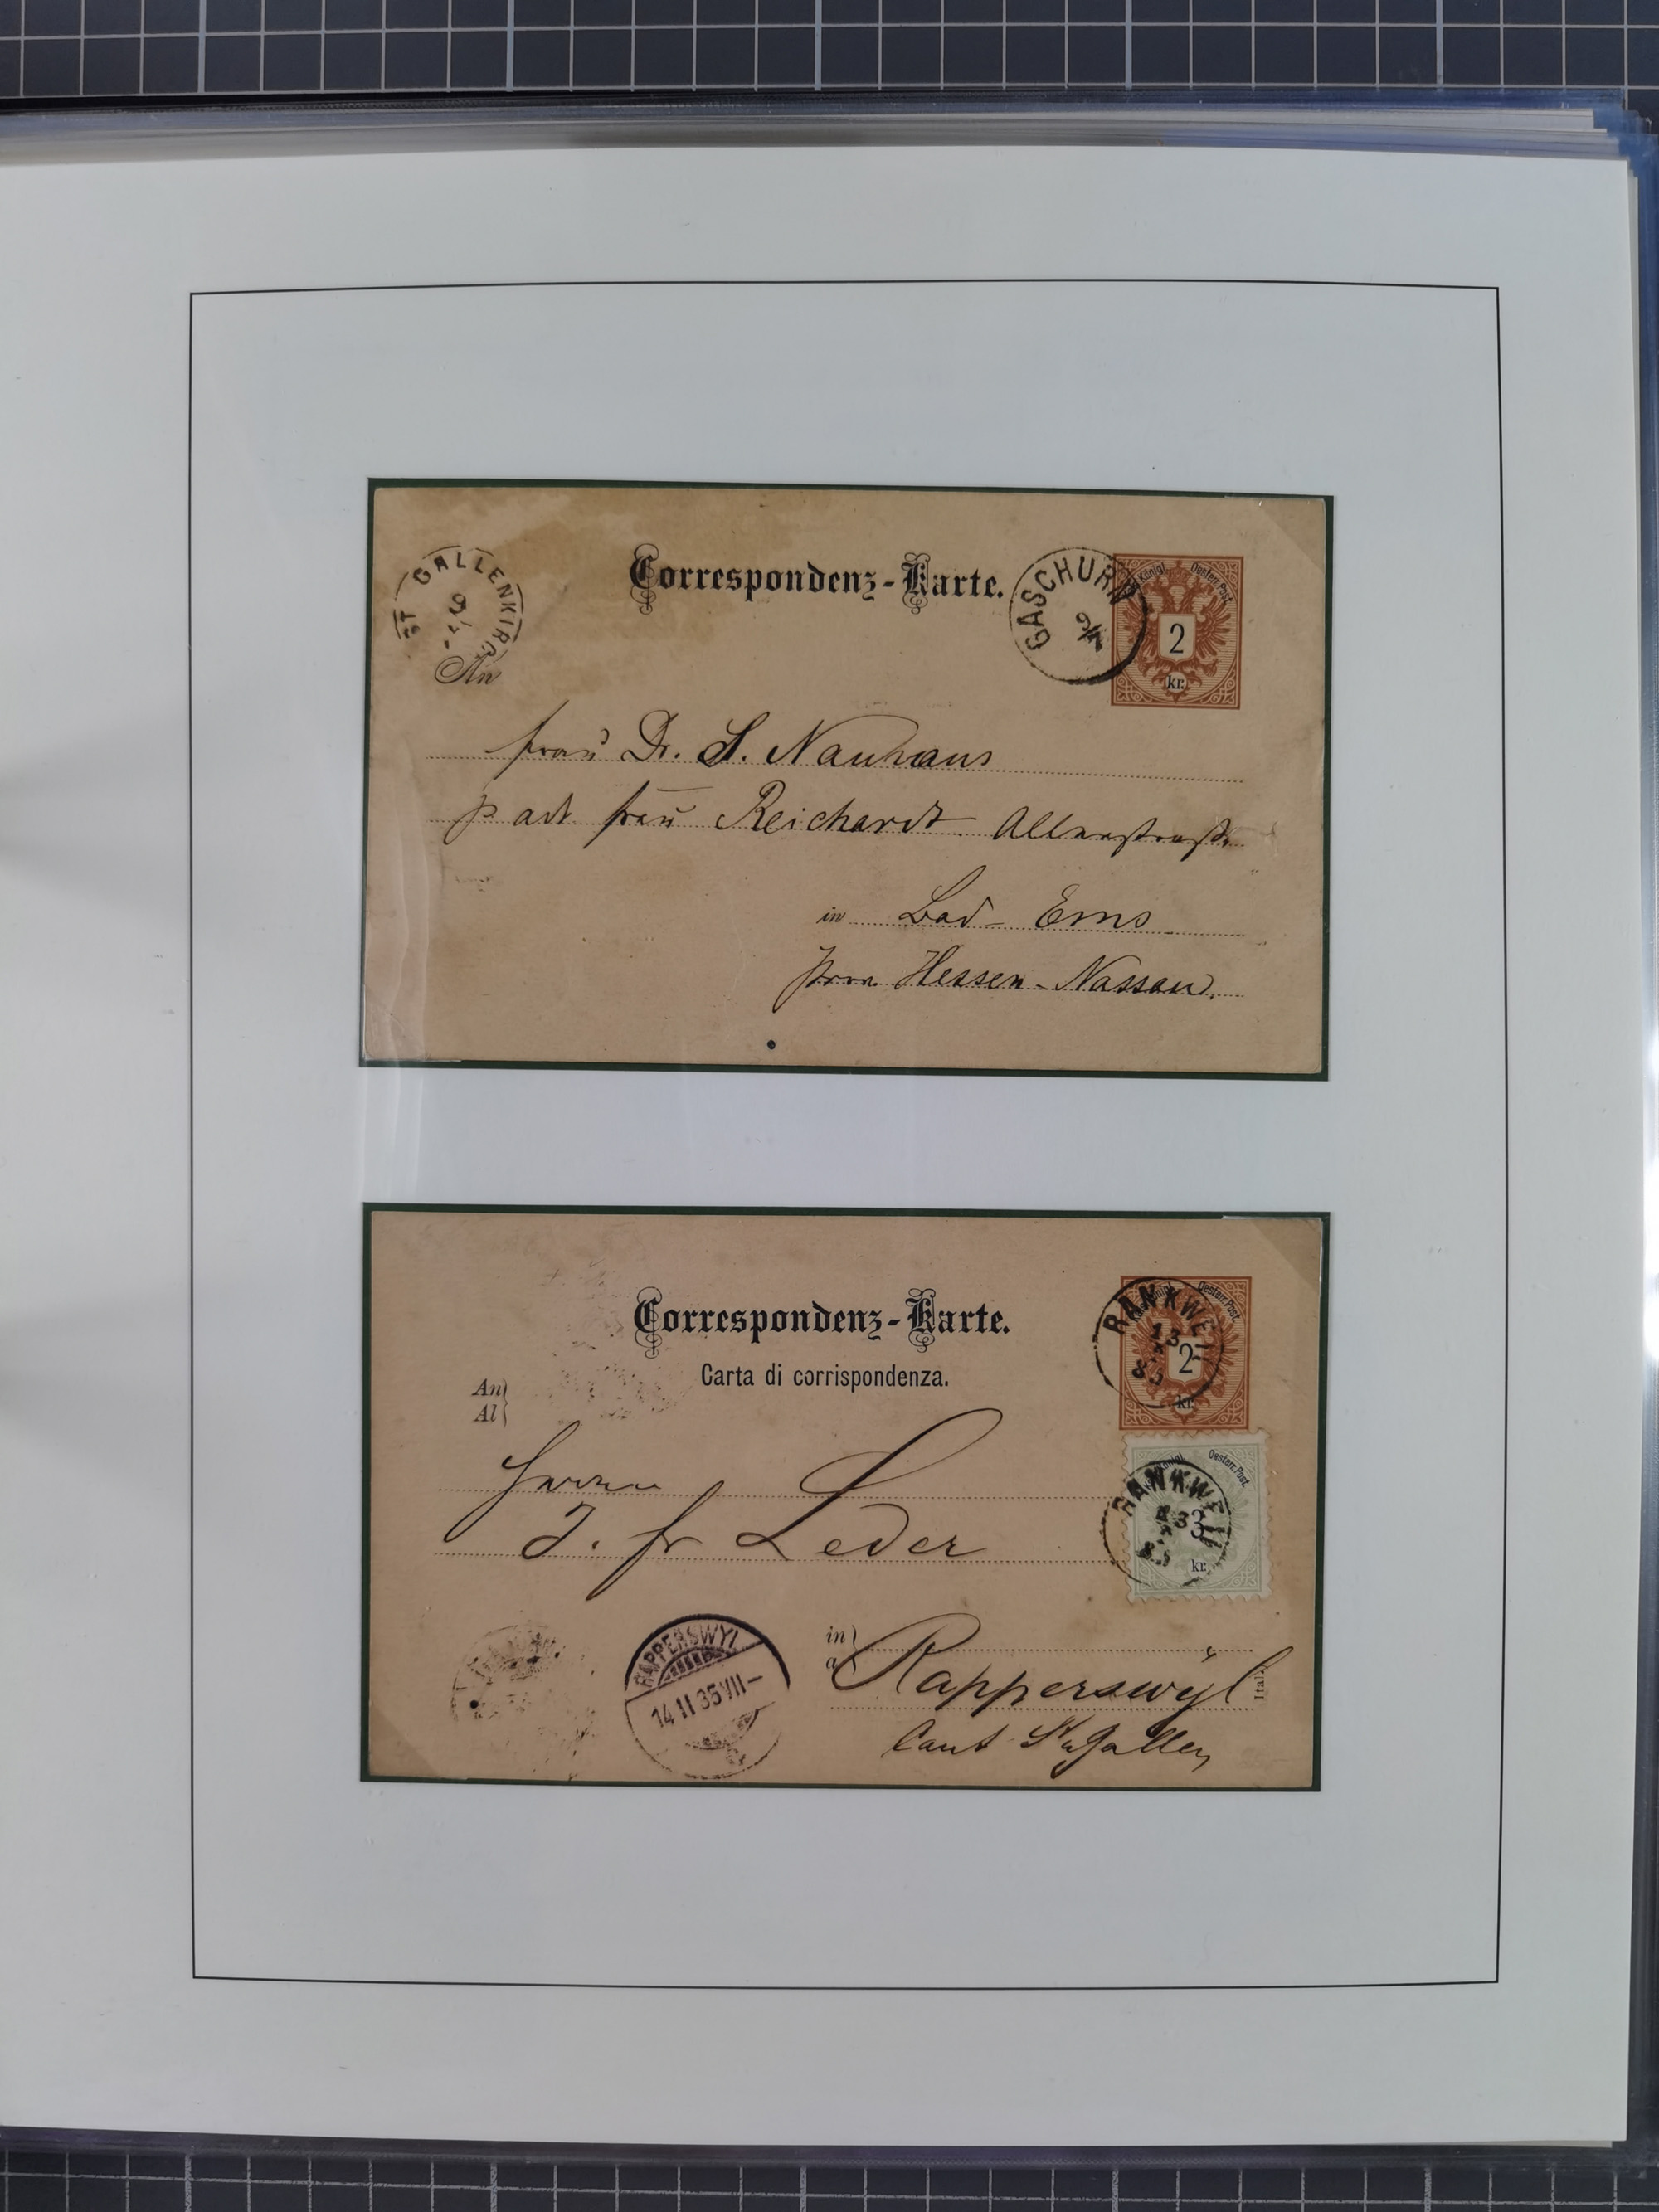 Correspondenz-Karte.
ST GALLENKIRCH
9/7
GASCHURN
Königl. Oesterr. Post
2
kr.
An
Frau Dr. S. Nauhaus
p adr. Frau Reichardt
in Bad-Ems
Prov. Hessen-Nassau.
Correspondenz-Karte.
Carta di corrispondenza.
An
Al
RANKWEIL
13
2
kr.
Oesterr. Post
Herrn
J. fr Leder
RANKWEIL
3
kr.
Oesterr. Post
RAPPERSWYL
14.II.85.VII-
in
a
Rapperswyl
Cant St Gallen
Ital.